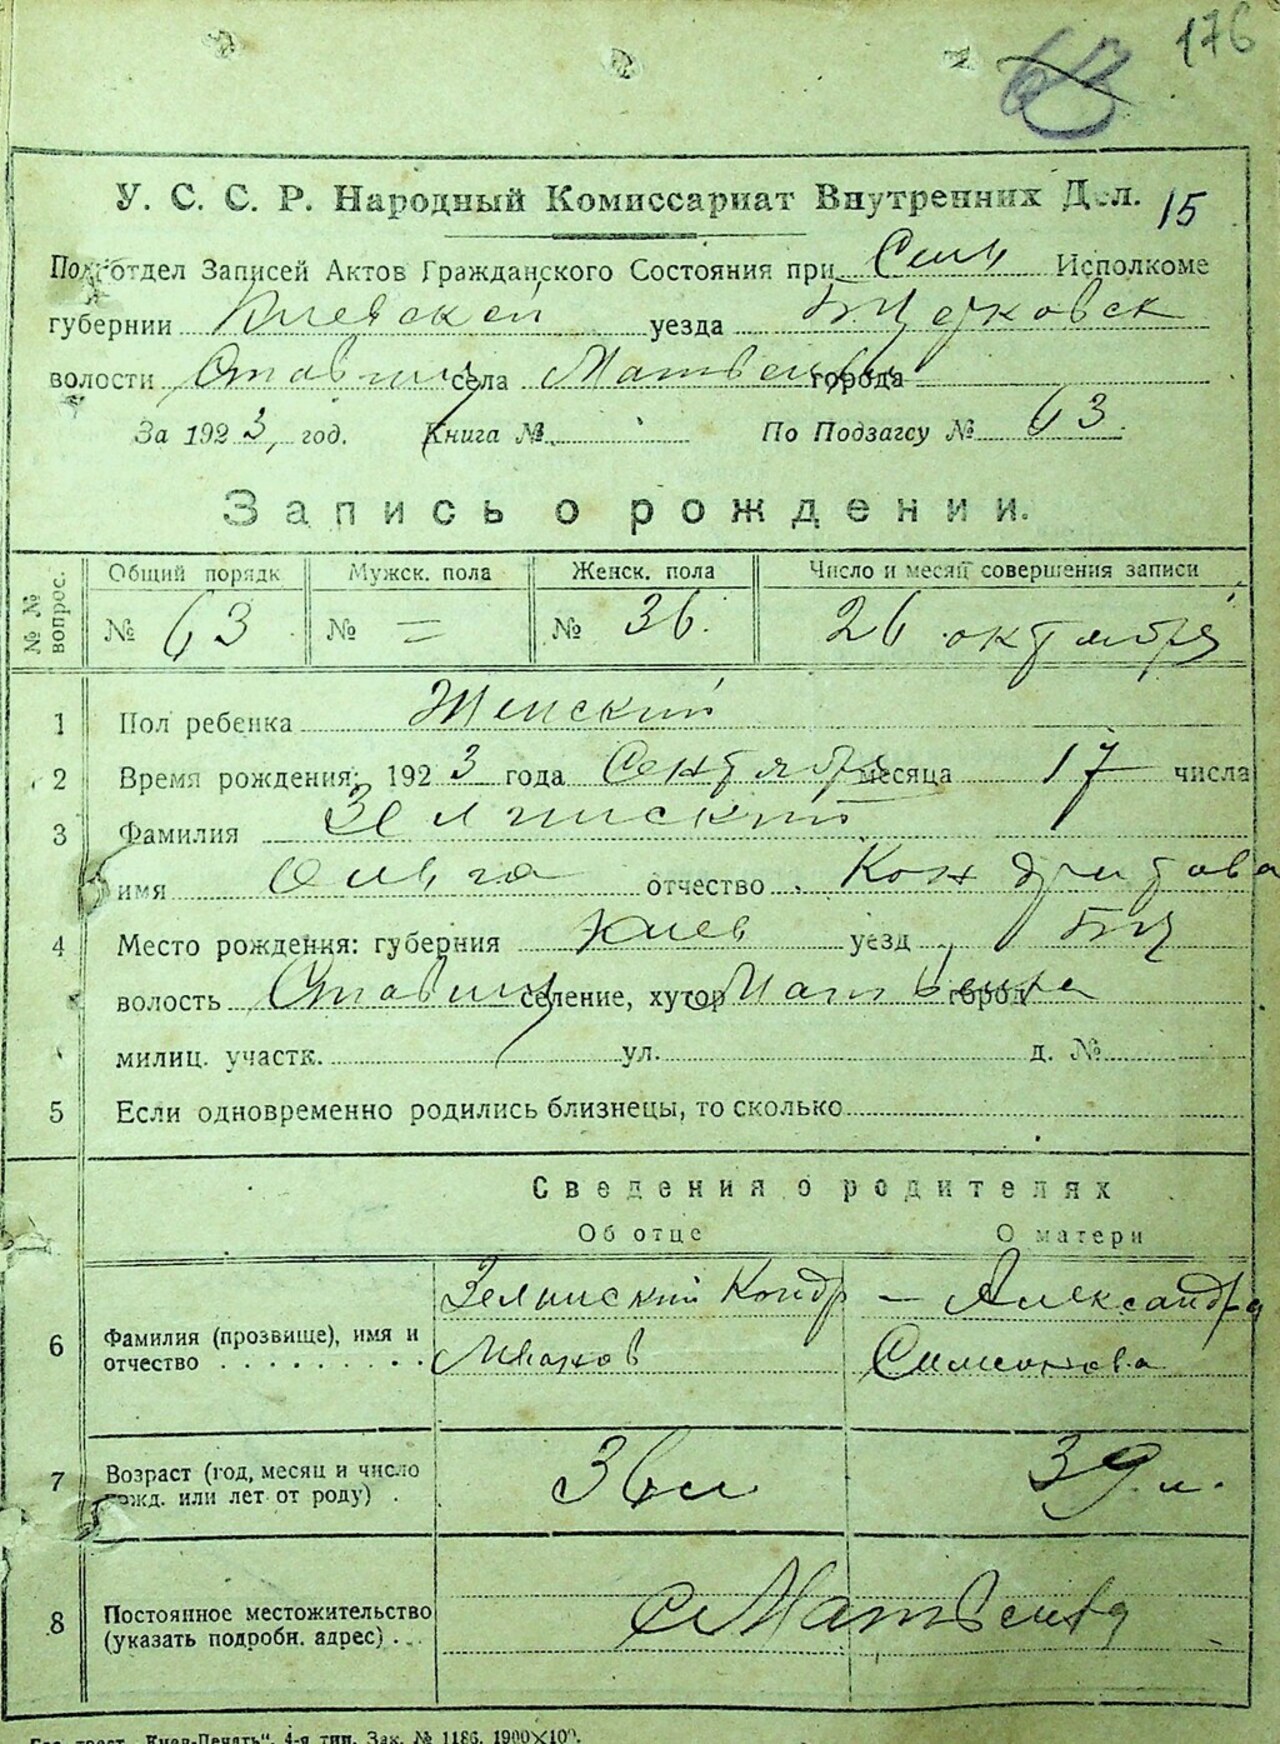 176
63
У. С. С. Р. Народный Комиссариат Внутренних Дел. 15
Под'отдел Записей Актов Гражданского Состояния при Сель Исполкоме
губернии Киевской уезда БЦерковск
волости Ставищ села Матвеиха города
За 1923, год. Книга № По Подзагсу № 63.
Запись о рождении.
№ № вопрос. Общий порядк Мужск. пола Женск. пола Число и месяц совершения записи
№ 63 № = № 36. 26 октября
1 Пол ребенка Женский
2 Время рождения: 1923 года Сентября месяца 17 числа
3 Фамилия Зелинский
имя Ольга отчество Кондратова
4 Место рождения: губерния Киев уезд БЦ
волость Ставищ селение, хутор Матвеиха город
милиц. участк. ул. д. №
5 Если одновременно родились близнецы, то сколько
Сведения о родителях
Об отце О матери
6 Фамилия (прозвище), имя и отчество Зелинский Кондр Иванов — Александра Симонова
7 Возраст (год, месяц и число рожд. или лет от роду) . 36 л 39 л.
8 Постоянное местожительство (указать подробн. адрес) с Матвеиха
Гос. трест „Киев-Печать“, 4-я тип. Зак. № 1186. 1900×100.